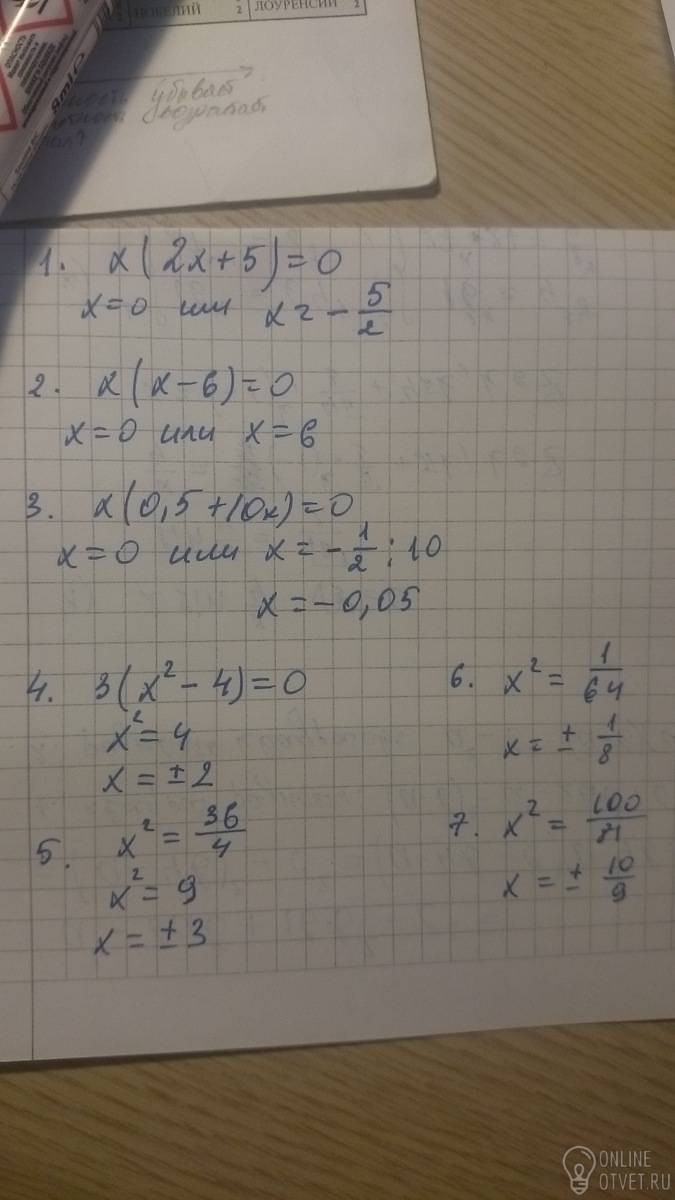 НОБЕЛИЙ 2 ЛОУРЕНСИЙ 2
убывает
возрастает
1. x(2x+5)=0
x=0 или x=-5/2
2. x(x-6)=0
x=0 или x=6
3. x(0,5+10x)=0
x=0 или x=-1/2:10
x=-0,05
4. 3(x²-4)=0
x²=4
x=±2
5. x²=36/4
x²=9
x=±3
6. x²=1/64
x=±1/8
7. x²=100/
x=±10/9
ONLINE
OTVET.RU